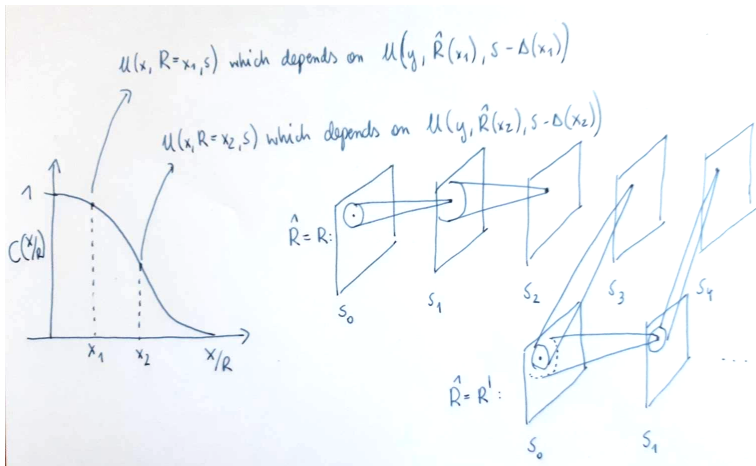 u(x, R=x₁, s) which depends on u(y, R̂(x₁), s-Δ(x₁))
u(x, R=x₂, s) which depends on u(y, R̂(x₂), s-Δ(x₂))
1
C(x/R)
x₁
x₂
x/R
R̂ = R:
S₀
S₁
S₂
S₃
S₄
R̂ = R':
S₀
S₁
....